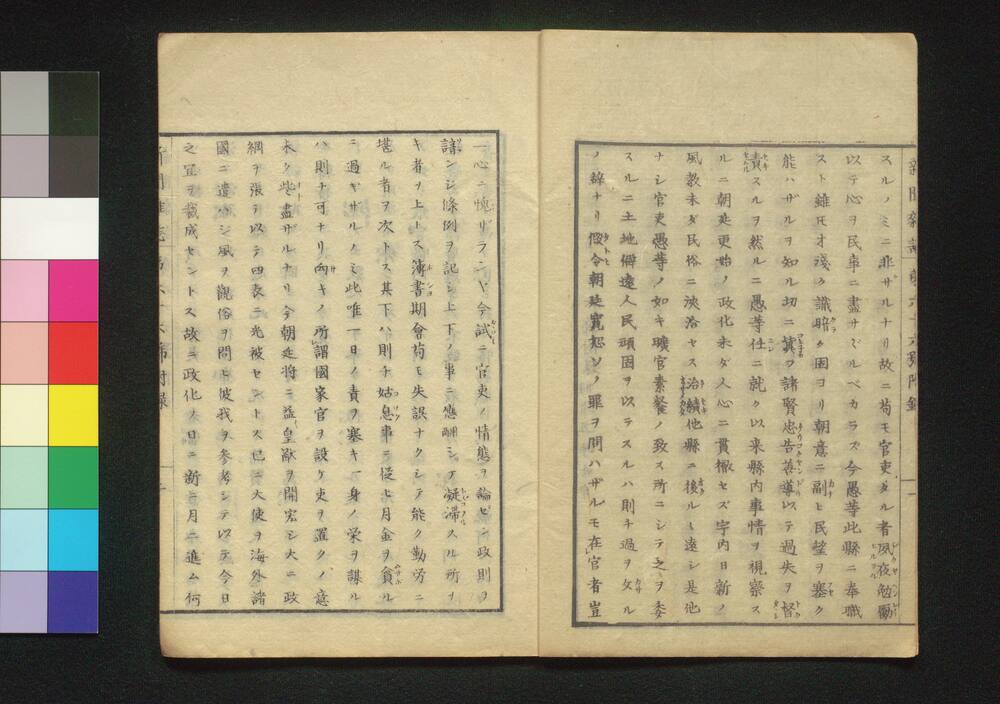 新聞雜誌 第六十六號附錄
スルノミニ非サルナリ故ニ苟モ官吏タル者夙夜勉勵
以テ心ヲ民事ニ盡サヾルベカラズ今愚等此縣ニ奉職
スト雖モ才殘ク識暗ク固ヨリ朝意ニ副ヒ民望ヲ塞ク
能ハザルヲ知ル切ニ冀フ諸賢忠告善導以テ過失ヲ督
責スルヲ然ルニ愚等仕ニ就ク以來縣内事情ヲ視察ス
ルニ朝廷更始ノ政化未ダ人心ニ貫徹セズ宇内日新ノ
風敎未ダ民俗ニ浹洽セス治績他縣ニ後ルヽ遠シ是他
ナシ官吏愚等ノ如キ曠官素餐ノ致ス所ニシテ之ヲ委
スルニ土地僻遠人民頑固ヲ以ラスルハ則チ過ヲ文ル
ノ辭ナリ假令朝廷寬恕ソノ罪ヲ問ハザルモ在官者豈
一心ニ愧サランヤ今試ニ官吏ノ情態ヲ論ゼン政則ヲ
諳ンシ條例ヲ記シ上下ノ事ニ應酬シテ凝滯スル所ヲ
キ者ヲ上トス簿書期會苟モ失誤ナクシテ能ク勤勞ニ
堪ル者ヲ次トス其下ハ則チ姑息事ニ從ヒ月金ヲ貪ル
ニ過ギザルノミ此唯一日ノ責ヲ塞キ一身ノ榮ヲ謀ル
ハ則チ可ナリ向キノ所謂國家官ヲ設ケ吏ヲ置クノ意
未タ些盡ザルナリ今朝廷將ニ益皇猷ヲ開宏シ大ニ政
綱ヲ張テ以テ四表ニ光被セントス已ニ大使ヲ海外諸
國ニ遣ハシ風ヲ觀俗ヲ問ヒ彼我ヲ參考シテ以テ今日
之宜ヲ裁成セントス故ニ政化ノ日ニ新ニ月ニ進ム何